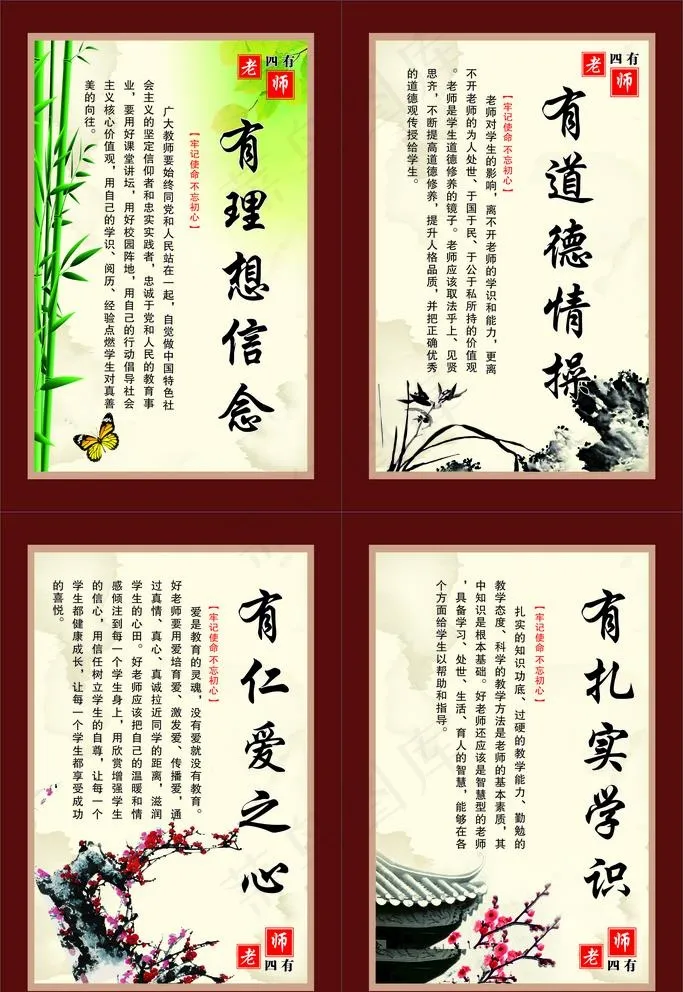 四有
老师
有理想信念
【牢记使命 不忘初心】
广大教师要始终同党和人民站在一起，自觉做中国特色社
会主义的坚定信仰者和忠实实践者，忠诚于党和人民的教育事
业，要用好课堂讲坛，用好校园阵地，用自己的行动倡导社会
主义核心价值观，用自己的学识、阅历、经验点燃学生对真善
美的向往。
四有
老师
有道德情操
【牢记使命 不忘初心】
老师对学生的影响，离不开老师的学识和能力，更离
不开老师的为人处世、于国于民、于公于私所持的价值观
。老师是学生道德修养的镜子。老师应该取法乎上、见贤
思齐，不断提高道德修养，提升人格品质，并把正确优秀
的道德观传授给学生。
有仁爱之心
【牢记使命 不忘初心】
爱是教育的灵魂，没有爱就没有教育。
好老师要用爱培育爱、激发爱、传播爱，通
过真情、真心、真诚拉近同学的距离，滋润
学生的心田。好老师应该把自己的温暖和情
感倾注到每一个学生身上，用欣赏增强学生
的信心，用信任树立学生的自尊，让每一个
学生都健康成长，让每一个学生都享受成功
的喜悦。
老师
四有
有扎实学识
【牢记使命 不忘初心】
扎实的知识功底、过硬的教学能力、勤勉的
教学态度、科学的教学方法是老师的基本素质，其
中知识是根本基础。好老师还应该是智慧型的老师
，具备学习、处世、生活、育人的智慧，能够在各
个方面给学生以帮助和指导。
老师
四有